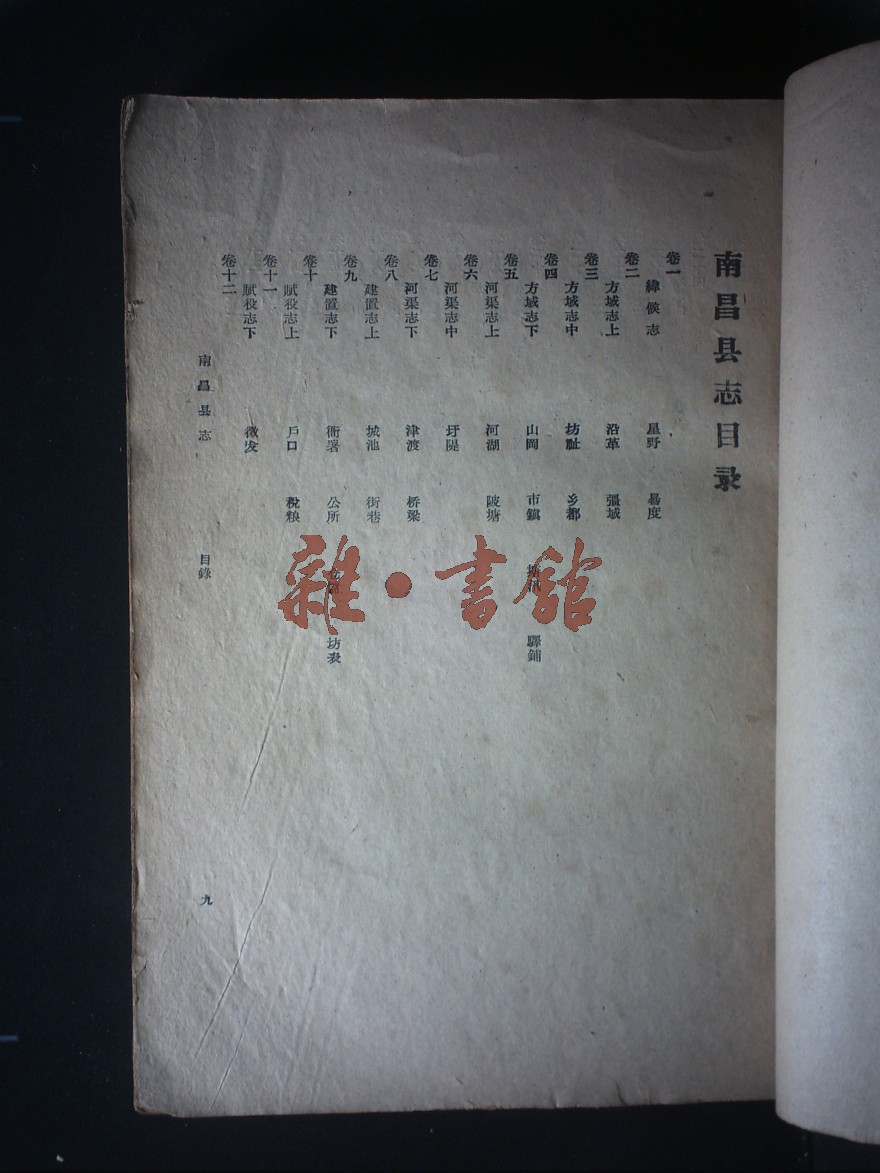 南昌县志目录
卷一
緯候志 星野 晷度
卷二
方域志上 沿革 强域
卷三
方域志中 坊甿 乡都
卷四
方域志下 山岡 市鎭 驛鋪
卷五
河渠志上 河湖 陂塘
卷六
河渠志中 圩隄
卷七
河渠志下 津渡 桥梁
卷八
建置志上 城池 街巷
卷九
建置志下 衙署 公所 坊表
卷十
賦役志上 戶口 税粮
卷十一
賦役志下 徵发
卷十二
南昌县志 目錄 九
雜·書館